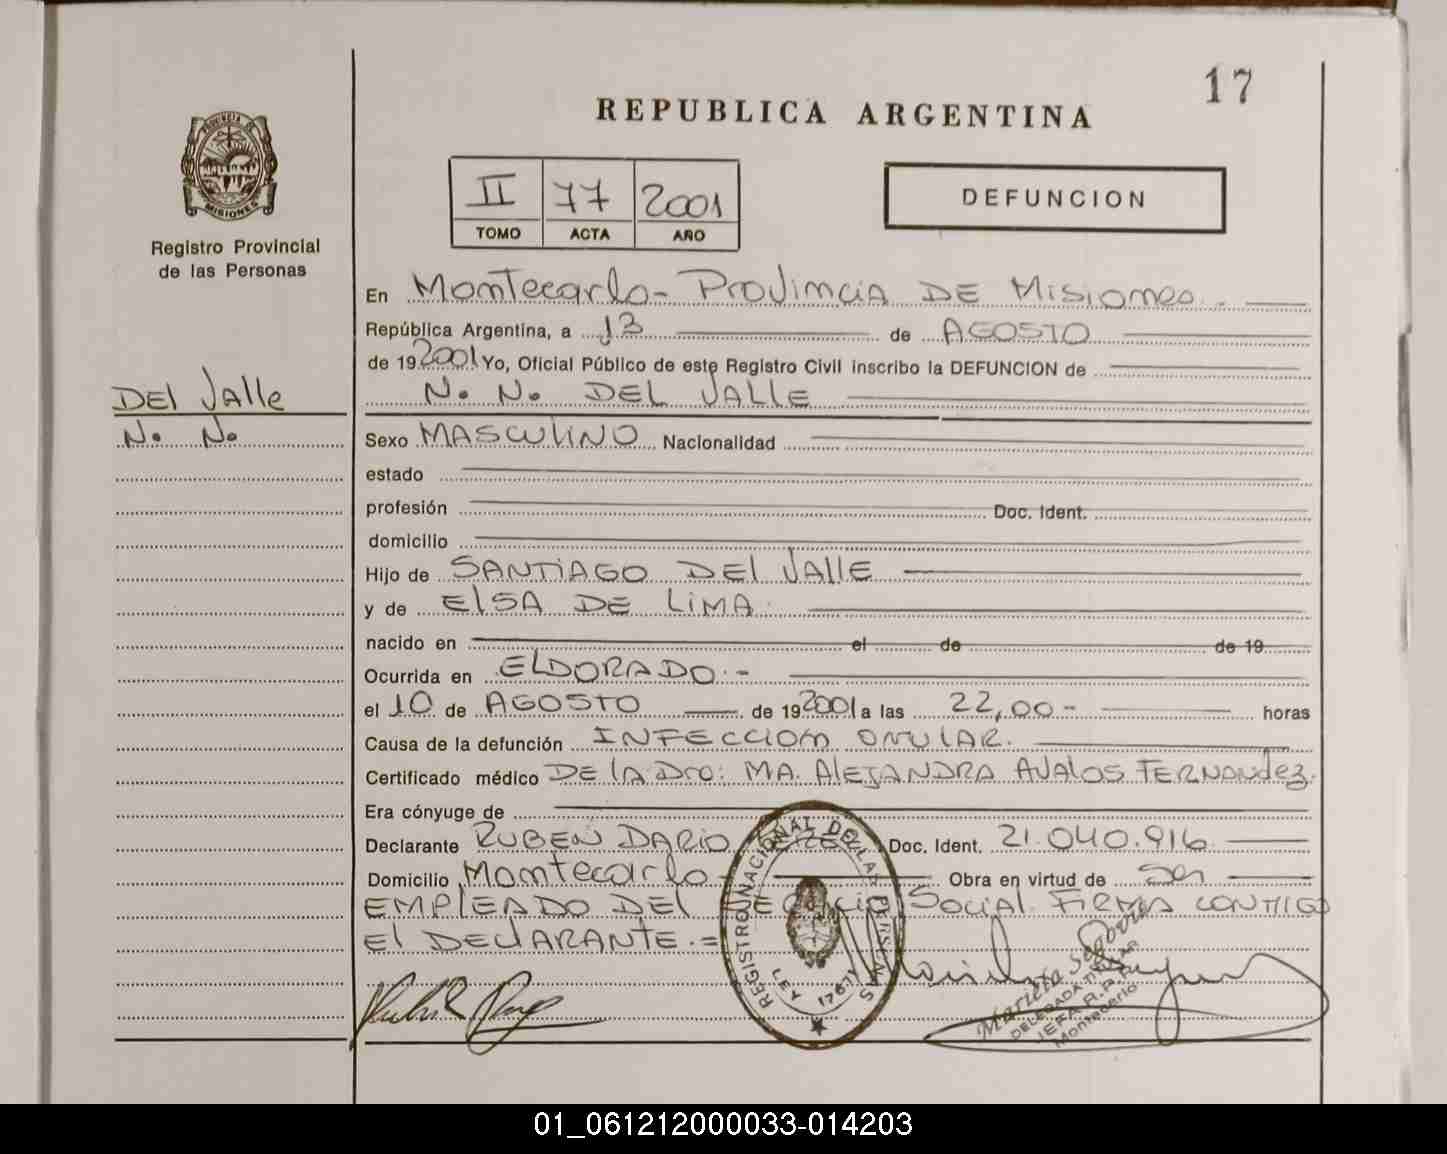 17
REPUBLICA ARGENTINA
PROVINCIA DE
MISIONES
Registro Provincial
de las Personas
II 77 2001
TOMO ACTA AÑO
DEFUNCION
En Montecarlo - Provincia DE Misiones.-
República Argentina, a 13 de AGOSTO
de 19 2001 Yo, Oficial Público de este Registro Civil inscribo la DEFUNCION de
N. N. DEL VALLE
DEl Valle
N. No
Sexo MASCULINO Nacionalidad
estado
profesión Doc. Ident.
domicilio
Hijo de SANTIAGO DEl VAllE
y de ElSA DE LiMA.
nacido en el de de 19
Ocurrida en ELDORADO.-
el 10 de AGOSTO de 19 2001 a las 22,00- horas
Causa de la defunción INFECCION OVULAR.
Certificado médico DE lA Dra: MA. AlEJANDRA AVAlOS FERNANdez.
Era cónyuge de
Declarante RUBEN DARIO Doc. Ident. 21.040.916
Domicilio Montecarlo Obra en virtud de Ser
EMPlEADO DEl SOCIAl. FiRMA CONMIGO
El DEClARANTE.=
REGISTRO NACIONAL DE LAS PERSONAS
LEY 17671
Marieta Segovia
DELEGADA TITULAR
JEFA R.P.P.
Montecarlo
01_061212000033-014203